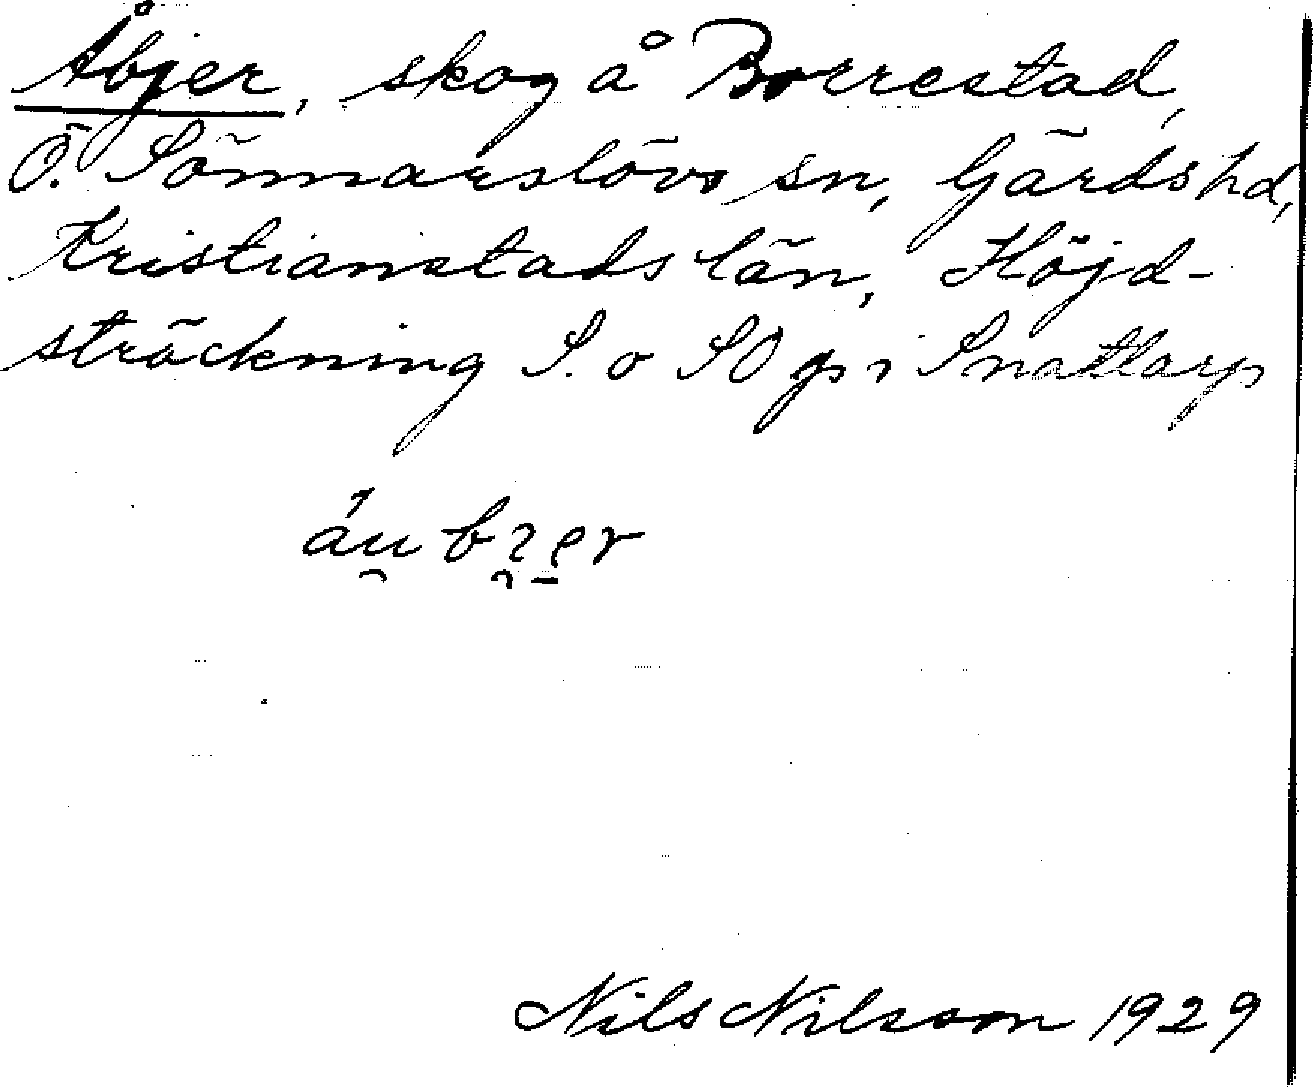 Åbjer, skog å Borrestad,
Ö. Sönnarslövs sn, Gärds hd,
Kristianstads län, Höjd-
sträckning S. o SO på Snattarp
Nils Nilsson 1929